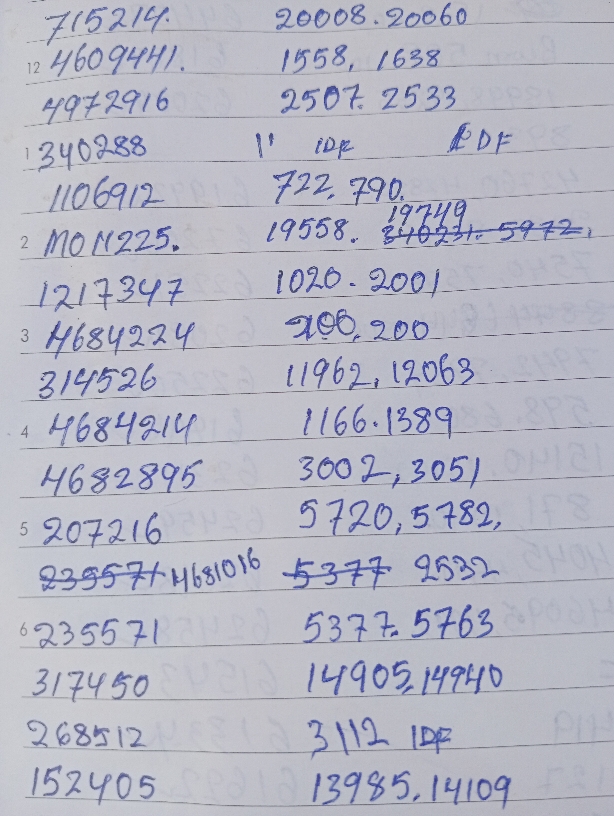 715214. 20008.20060
12 4609441. 1558, 1638
4972916 2507. 2533
1 340288 11 IDF IDF
1106912 722, 790.
19749
2 M011225. 19558. 340231. 5972,
1217347 1020. 2001
3 4684224 200, 200
314526 11962, 12063
4 4684214 1166.1389
4682895 3002, 3051
5 207216 5720, 5782,
235571 4681016 5377 2532
6 235571 5377. 5763
317450 14905, 14940
268512 3112 IDF
152405 13985, 14109